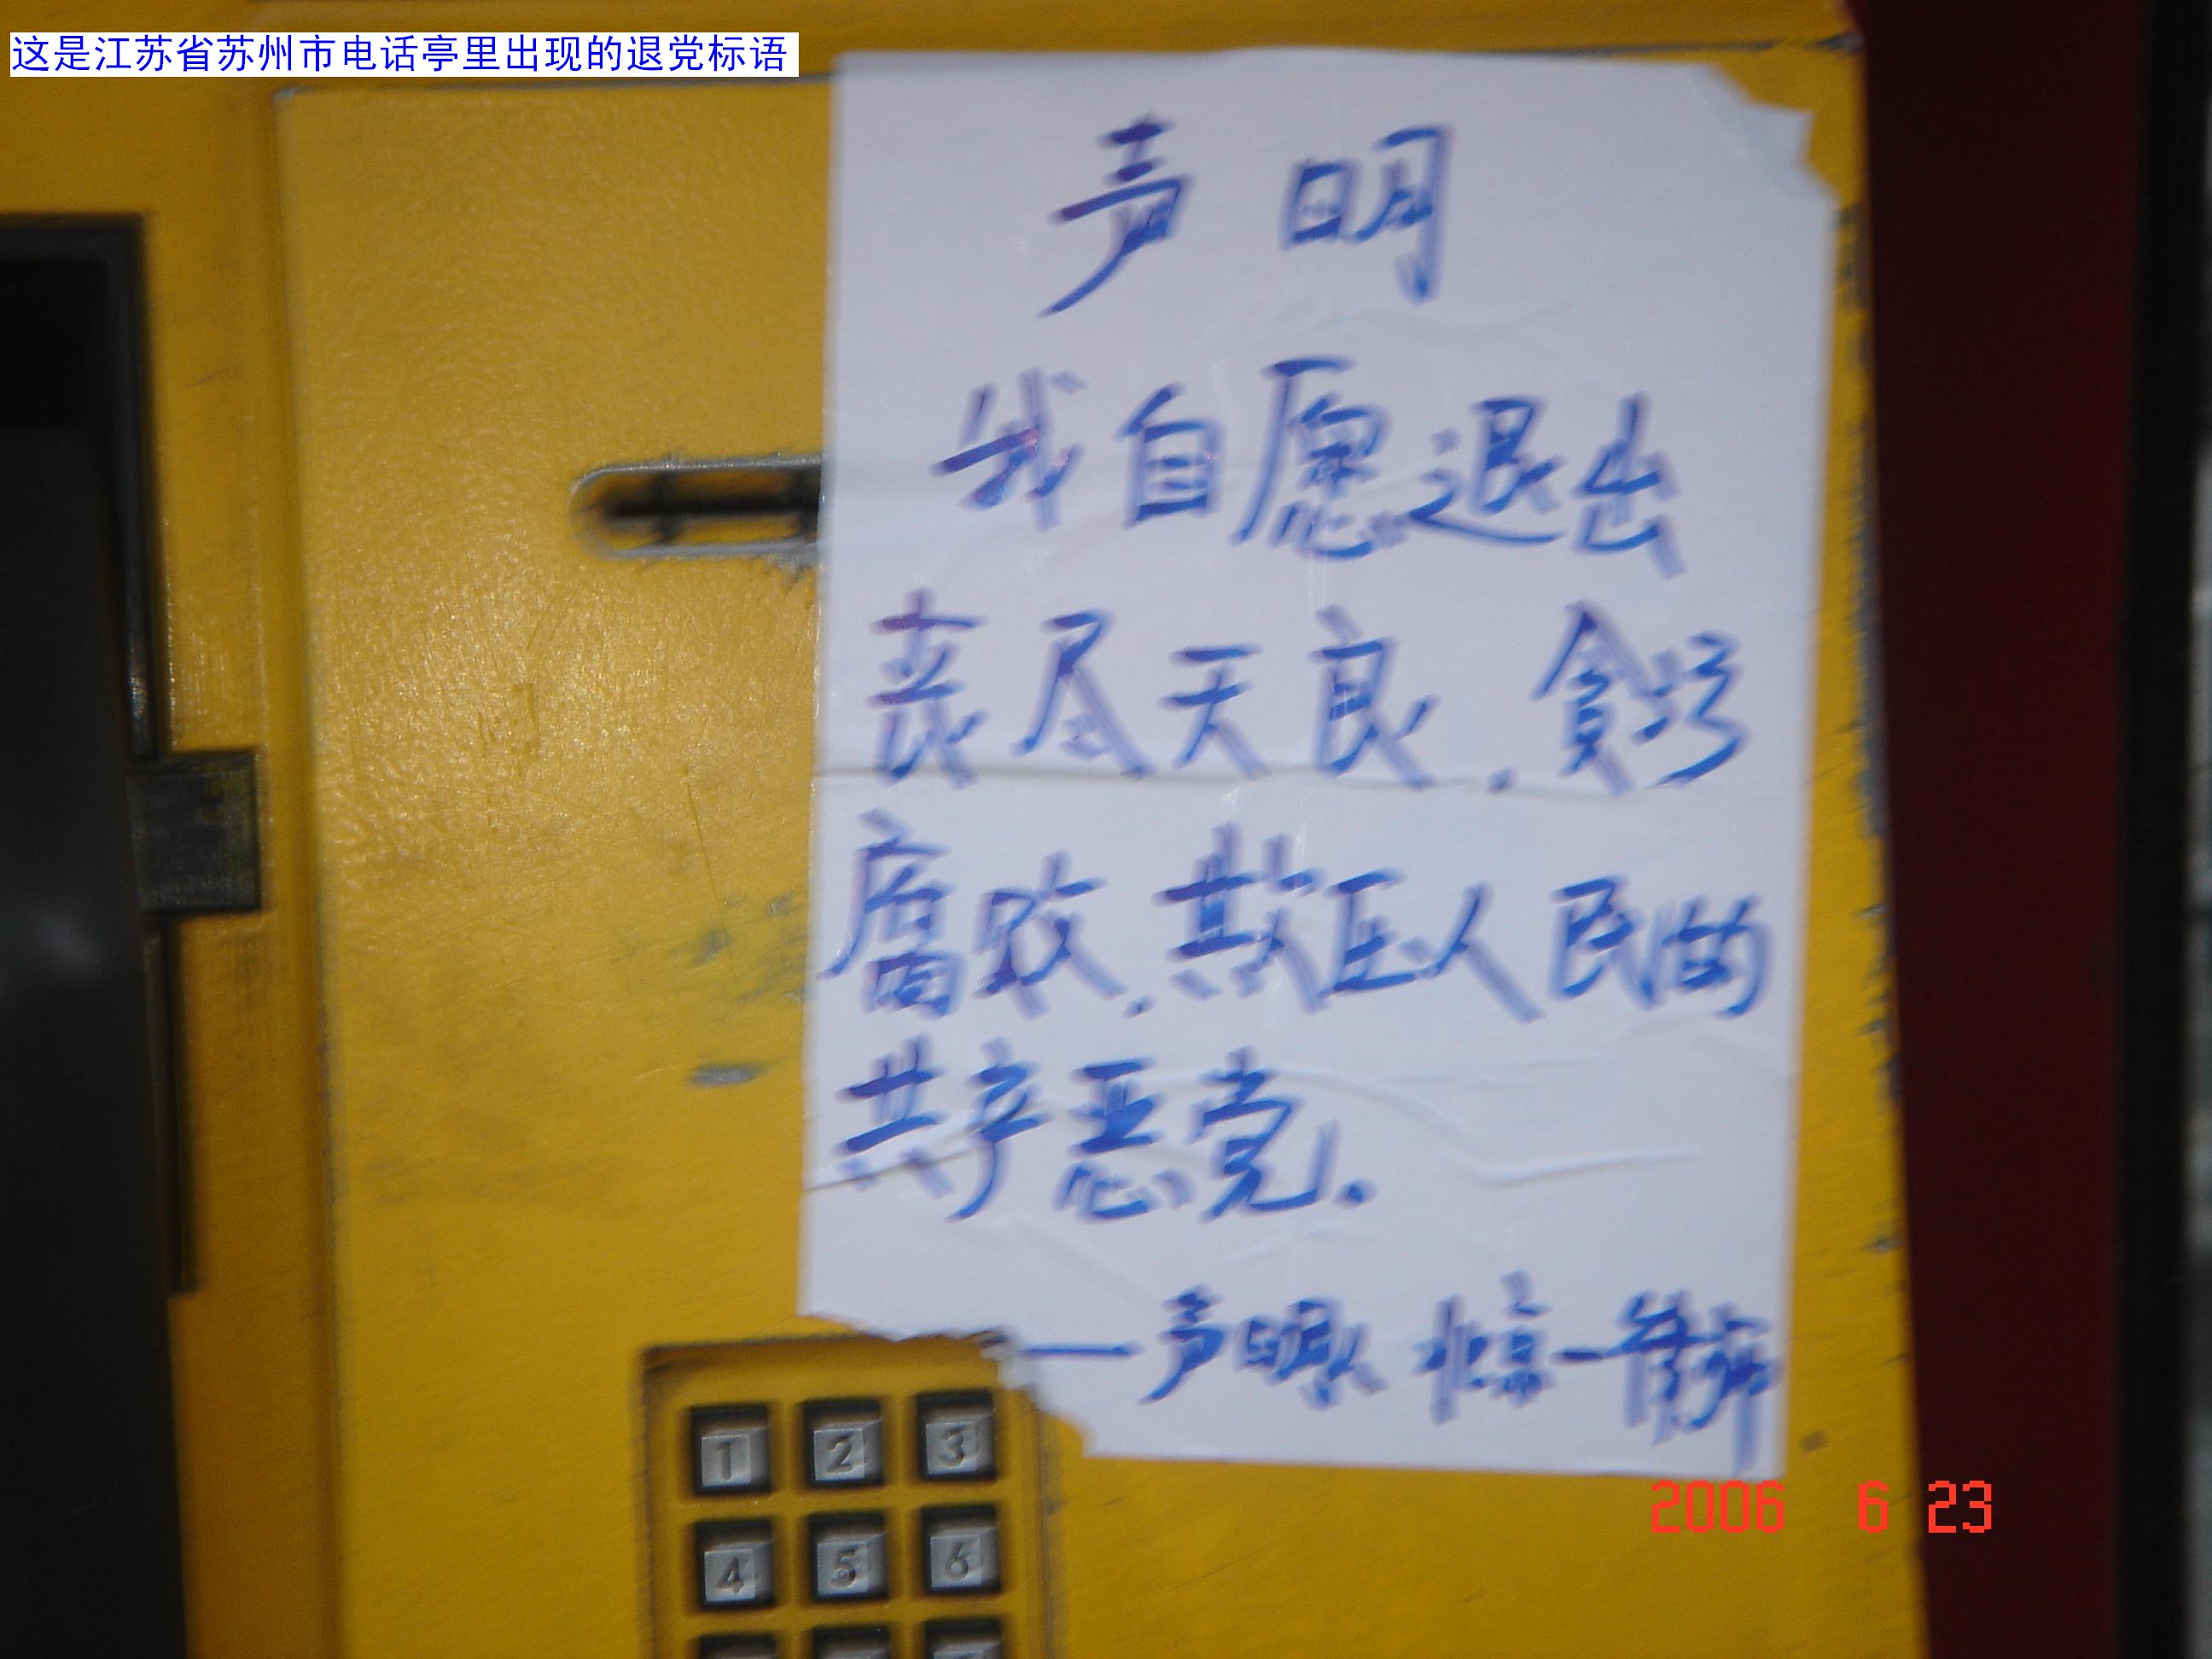 这是江苏省苏州市电话亭里出现的退党标语
声明
我自愿退出
丧尽天良.贪污
腐败.欺压人民的
共产恶党.
——声明人
1 2 3
4 5 6
2006 6 23